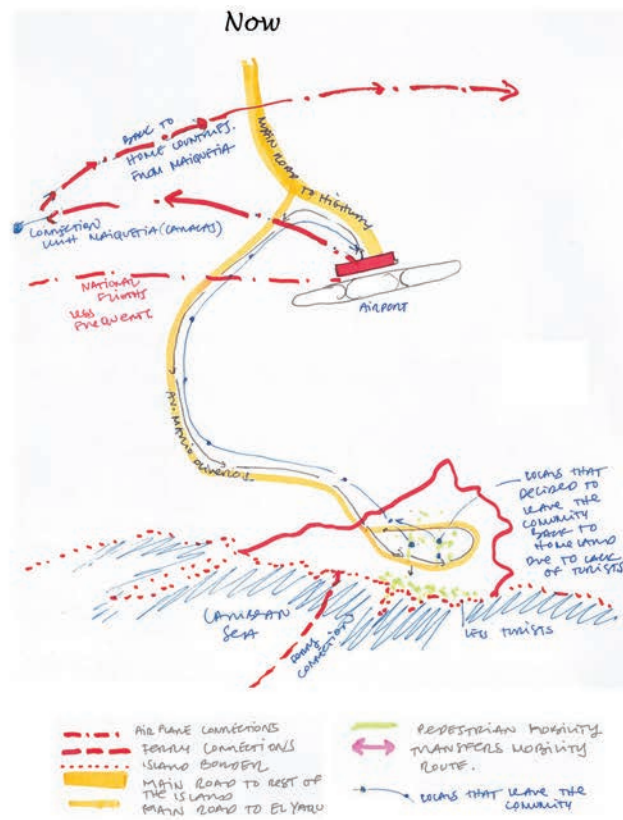 Now
BACK TO
HOME COUNTRIES.
FROM MAIQUETIA
MAIN ROAD TO HIGHWAY
CONNECTION
WITH MAIQUETIA (CARACAS)
NATIONAL
FLIGHTS
LESS
FREQUENTS
AIRPORT
AV. MARIO OLIVEROS.
LOCALS THAT
DECIDED TO
LEAVE THE
COMUNITY
BACK TO
HOMELAND
DUE TO LACK
OF TURISTS
CARIBEAN
SEA
FERRY
CONNECTIONS
LESS TURISTS
AIR PLANE CONNECTIONS
FERRY CONNECTIONS
ISLAND BORDER
MAIN ROAD TO REST OF
THE ISLAND
MAIN ROAD TO EL YAQU
PEDESTRIAN MOBILITY
TRANSFERS MOBILITY
ROUTE.
LOCALS THAT LEAVE THE
COMUNITY